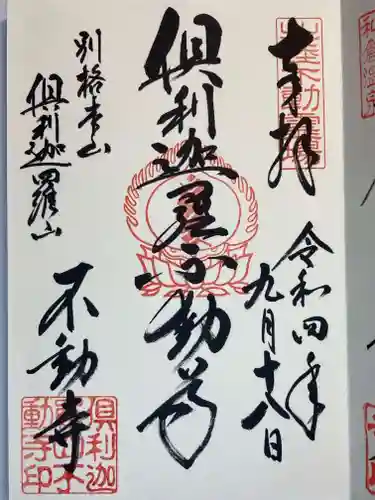 奉拝
令和四年
九月十八日
俱利迦羅不動尊
別格本山
俱利迦羅山
不動寺
俱利迦
不動寺印